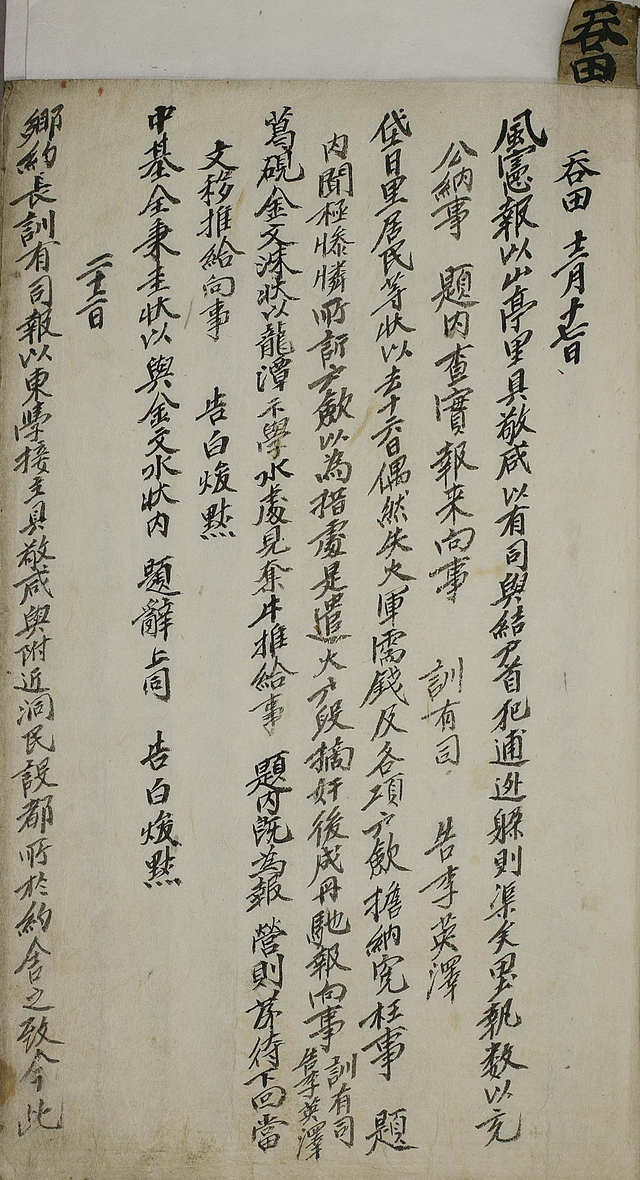 呑田
呑田 十二月十七日
風憲報以山亭里具敬咸以有司與結尹首犯逋逃躱則渠矣畓執數以充
公納事 題內查實報來向事 訓有司 告李英澤
垈日里居民等狀以去十六日偶然失火軍需錢及各項戶斂擔納寃枉事 題
內聞極慘憐所訴戶斂以爲措處是遣火戶段摘奸後成冊馳報向事 訓有司 告李英澤
蔦硯金文洙狀以龍潭 學水處見奪牛推給事 題內旣爲報營則等待下回當
文移推給向事 告白焌㸃
中基全秉圭狀以與金文水狀內 題辭上同 告白焌㸃
二十二日
鄕約長訓有司報以東學接主具敬咸與附近洞民設都所於約舍之致今此